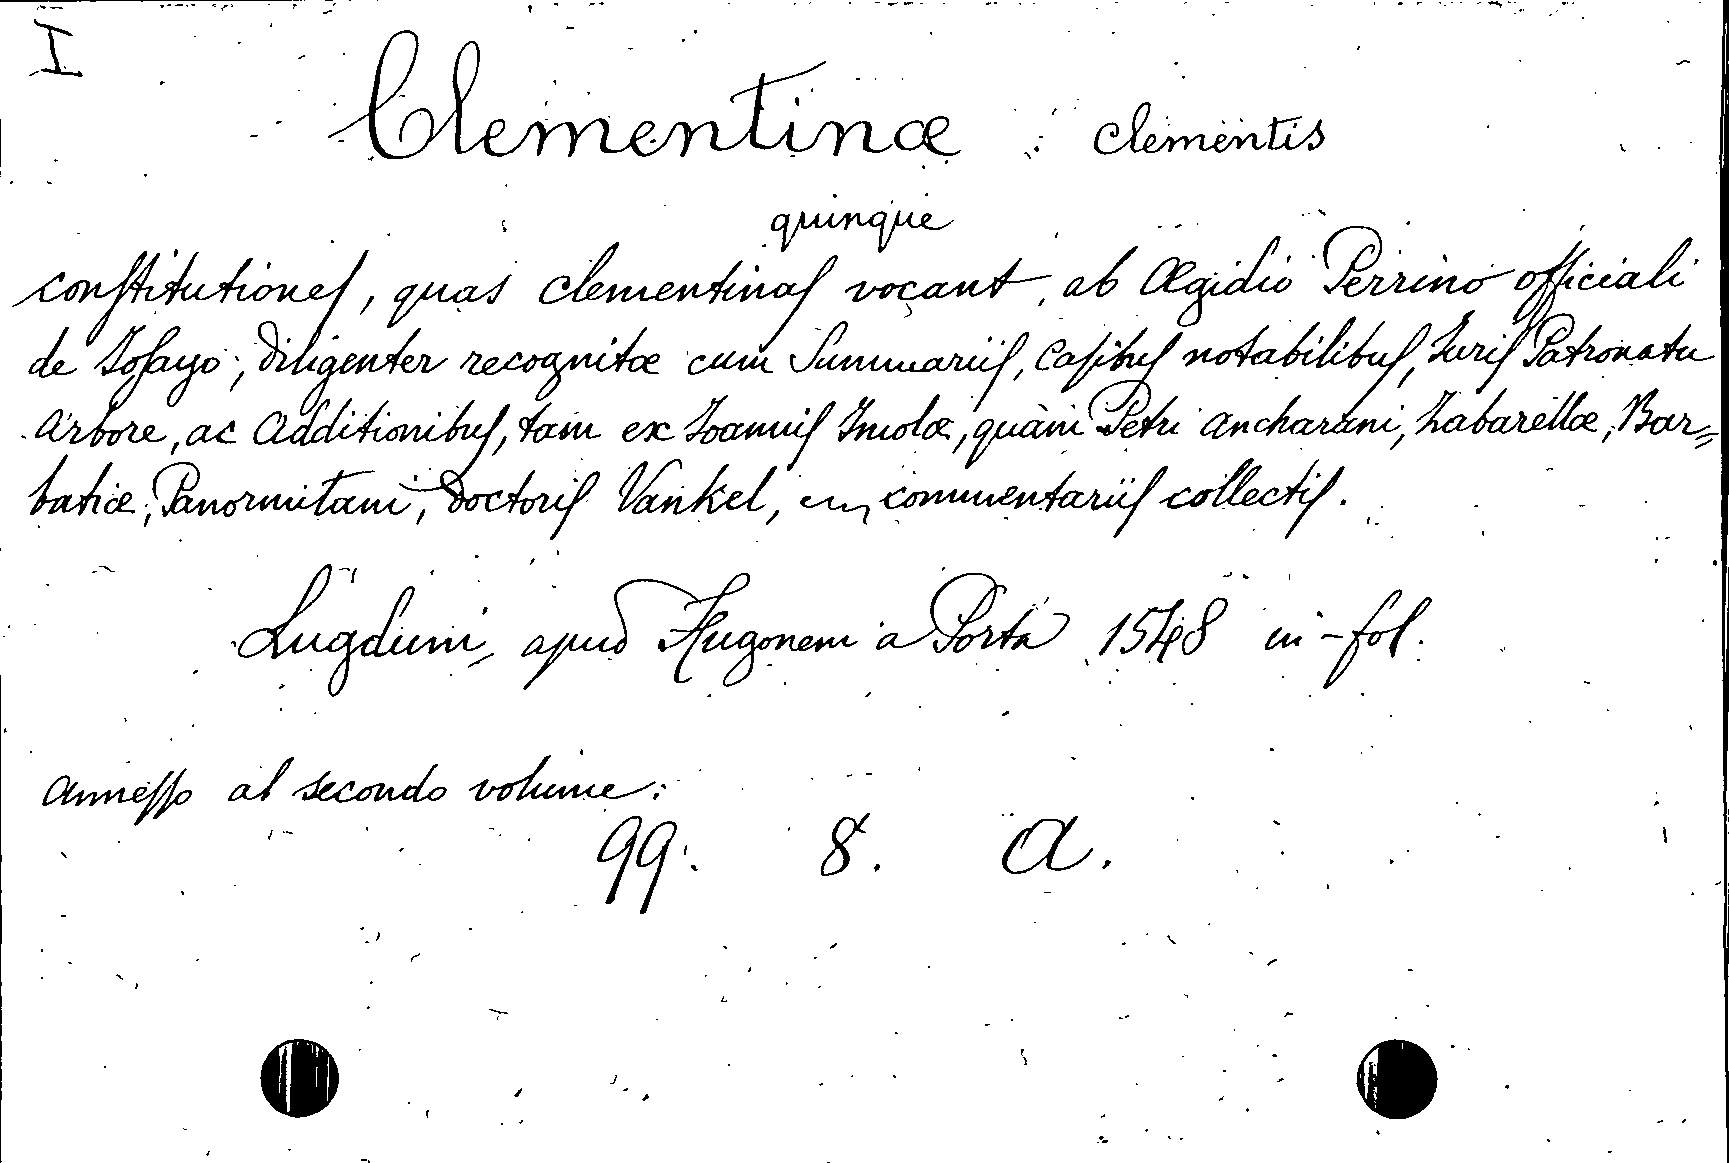 I
Clementinæ : Clementis
quinque
constitutiones, quas clementinas vocant, ab Ægidio Perrino officiali
de Josayo, diligenter recognitæ cum Summariis, Casibus notabilibus, Juris Patronatu
arbore, ac additionibus, tam ex Joannis Imolæ, quàm Petri Ancharani, Zabarellæ, Bar=
batiæ, Panormitani, Doctoris Vankel, commentariis collectis.
Lugduni, apud Hugonem a Porta 1548 in-fol.
annesso al secondo volume:
99. 8. A.